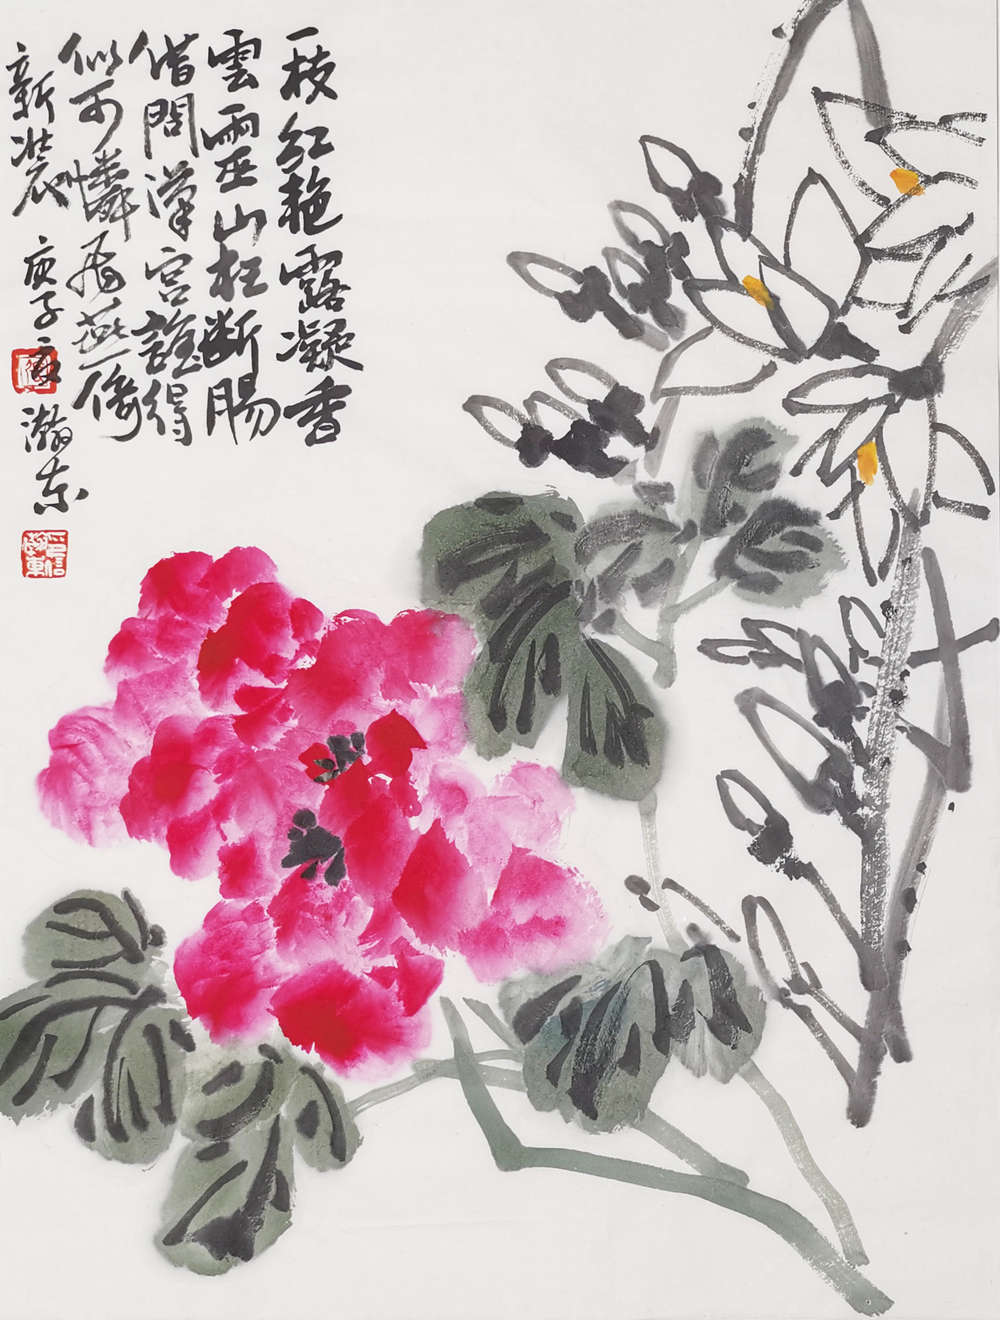 一枝红艳露凝香
雲雨巫山枉断腸
借問漢宫誰得
似可憐飛燕倚
新裝 庚子夏 瀚东
印信
瀚東